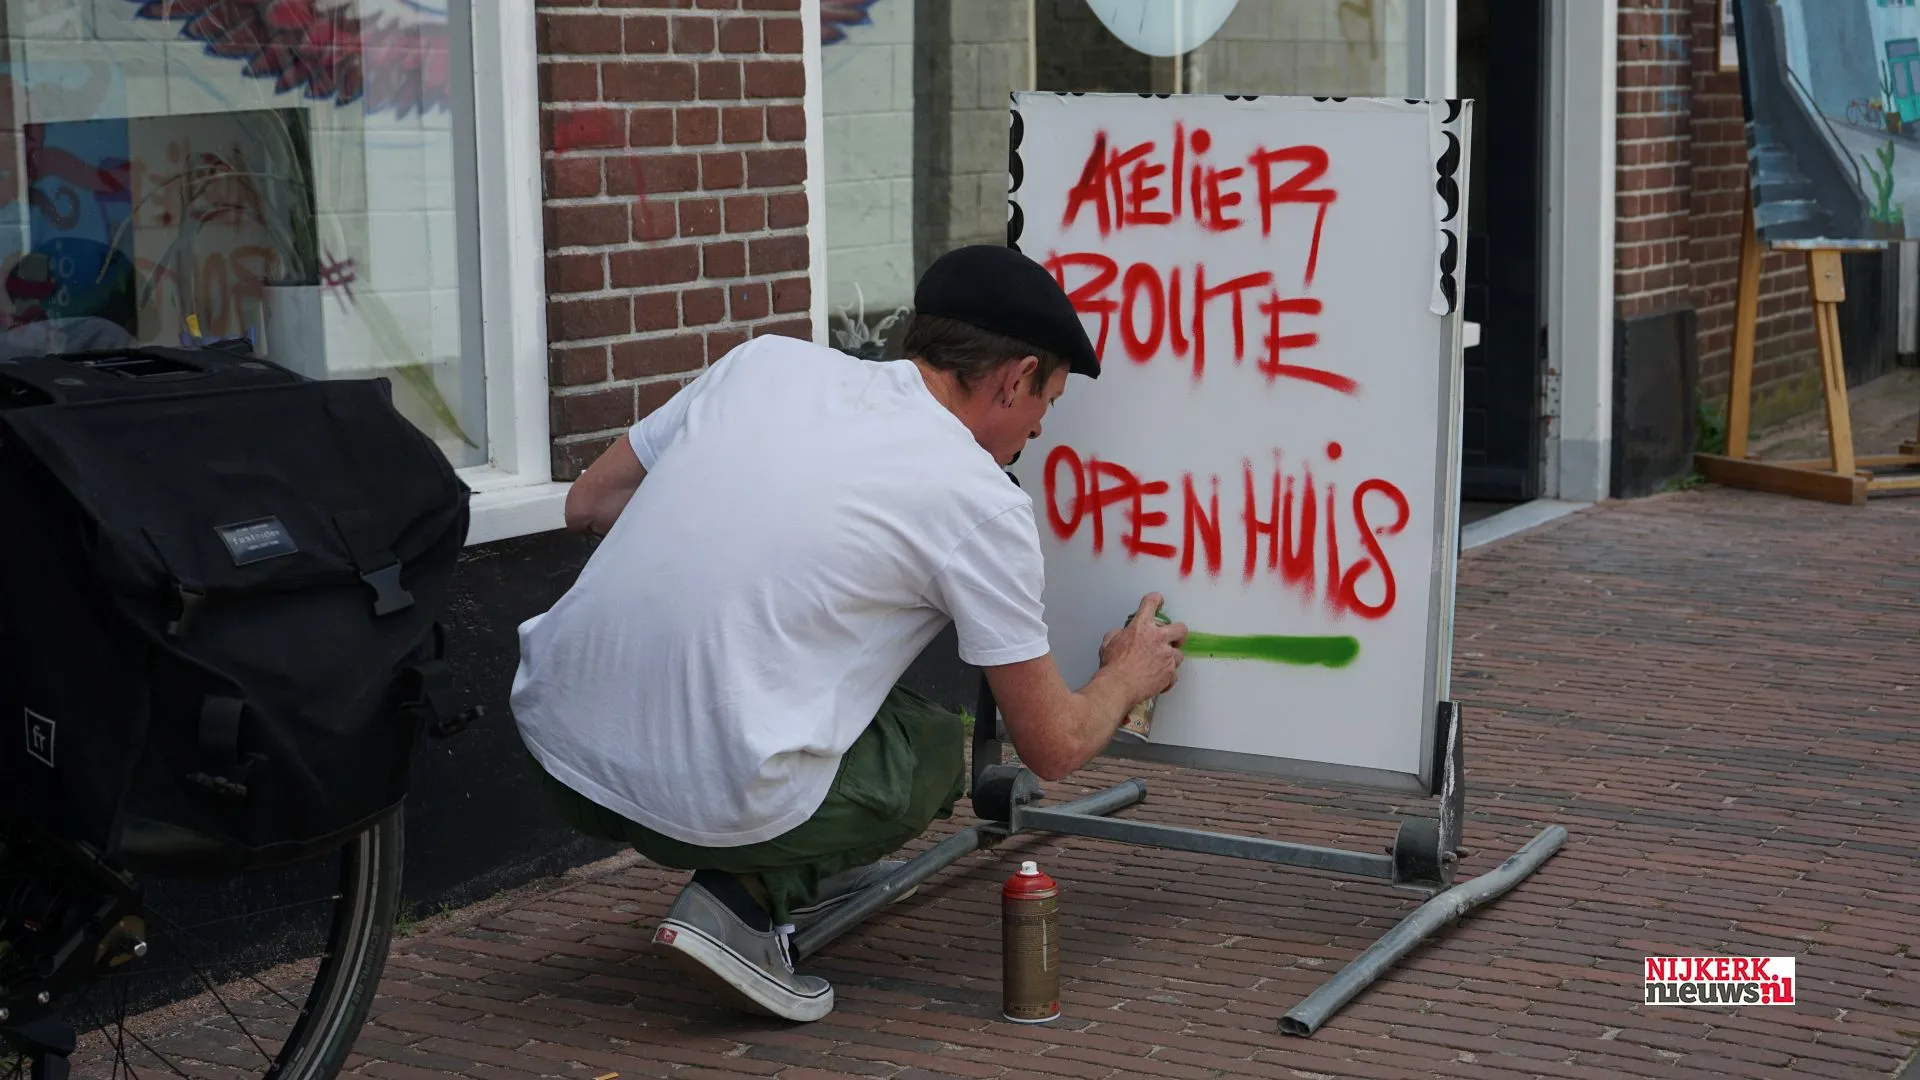 ATELIER
ROUTE
OPEN HUIS
fastrider
fr
NIJKERK.
nieuws.nl